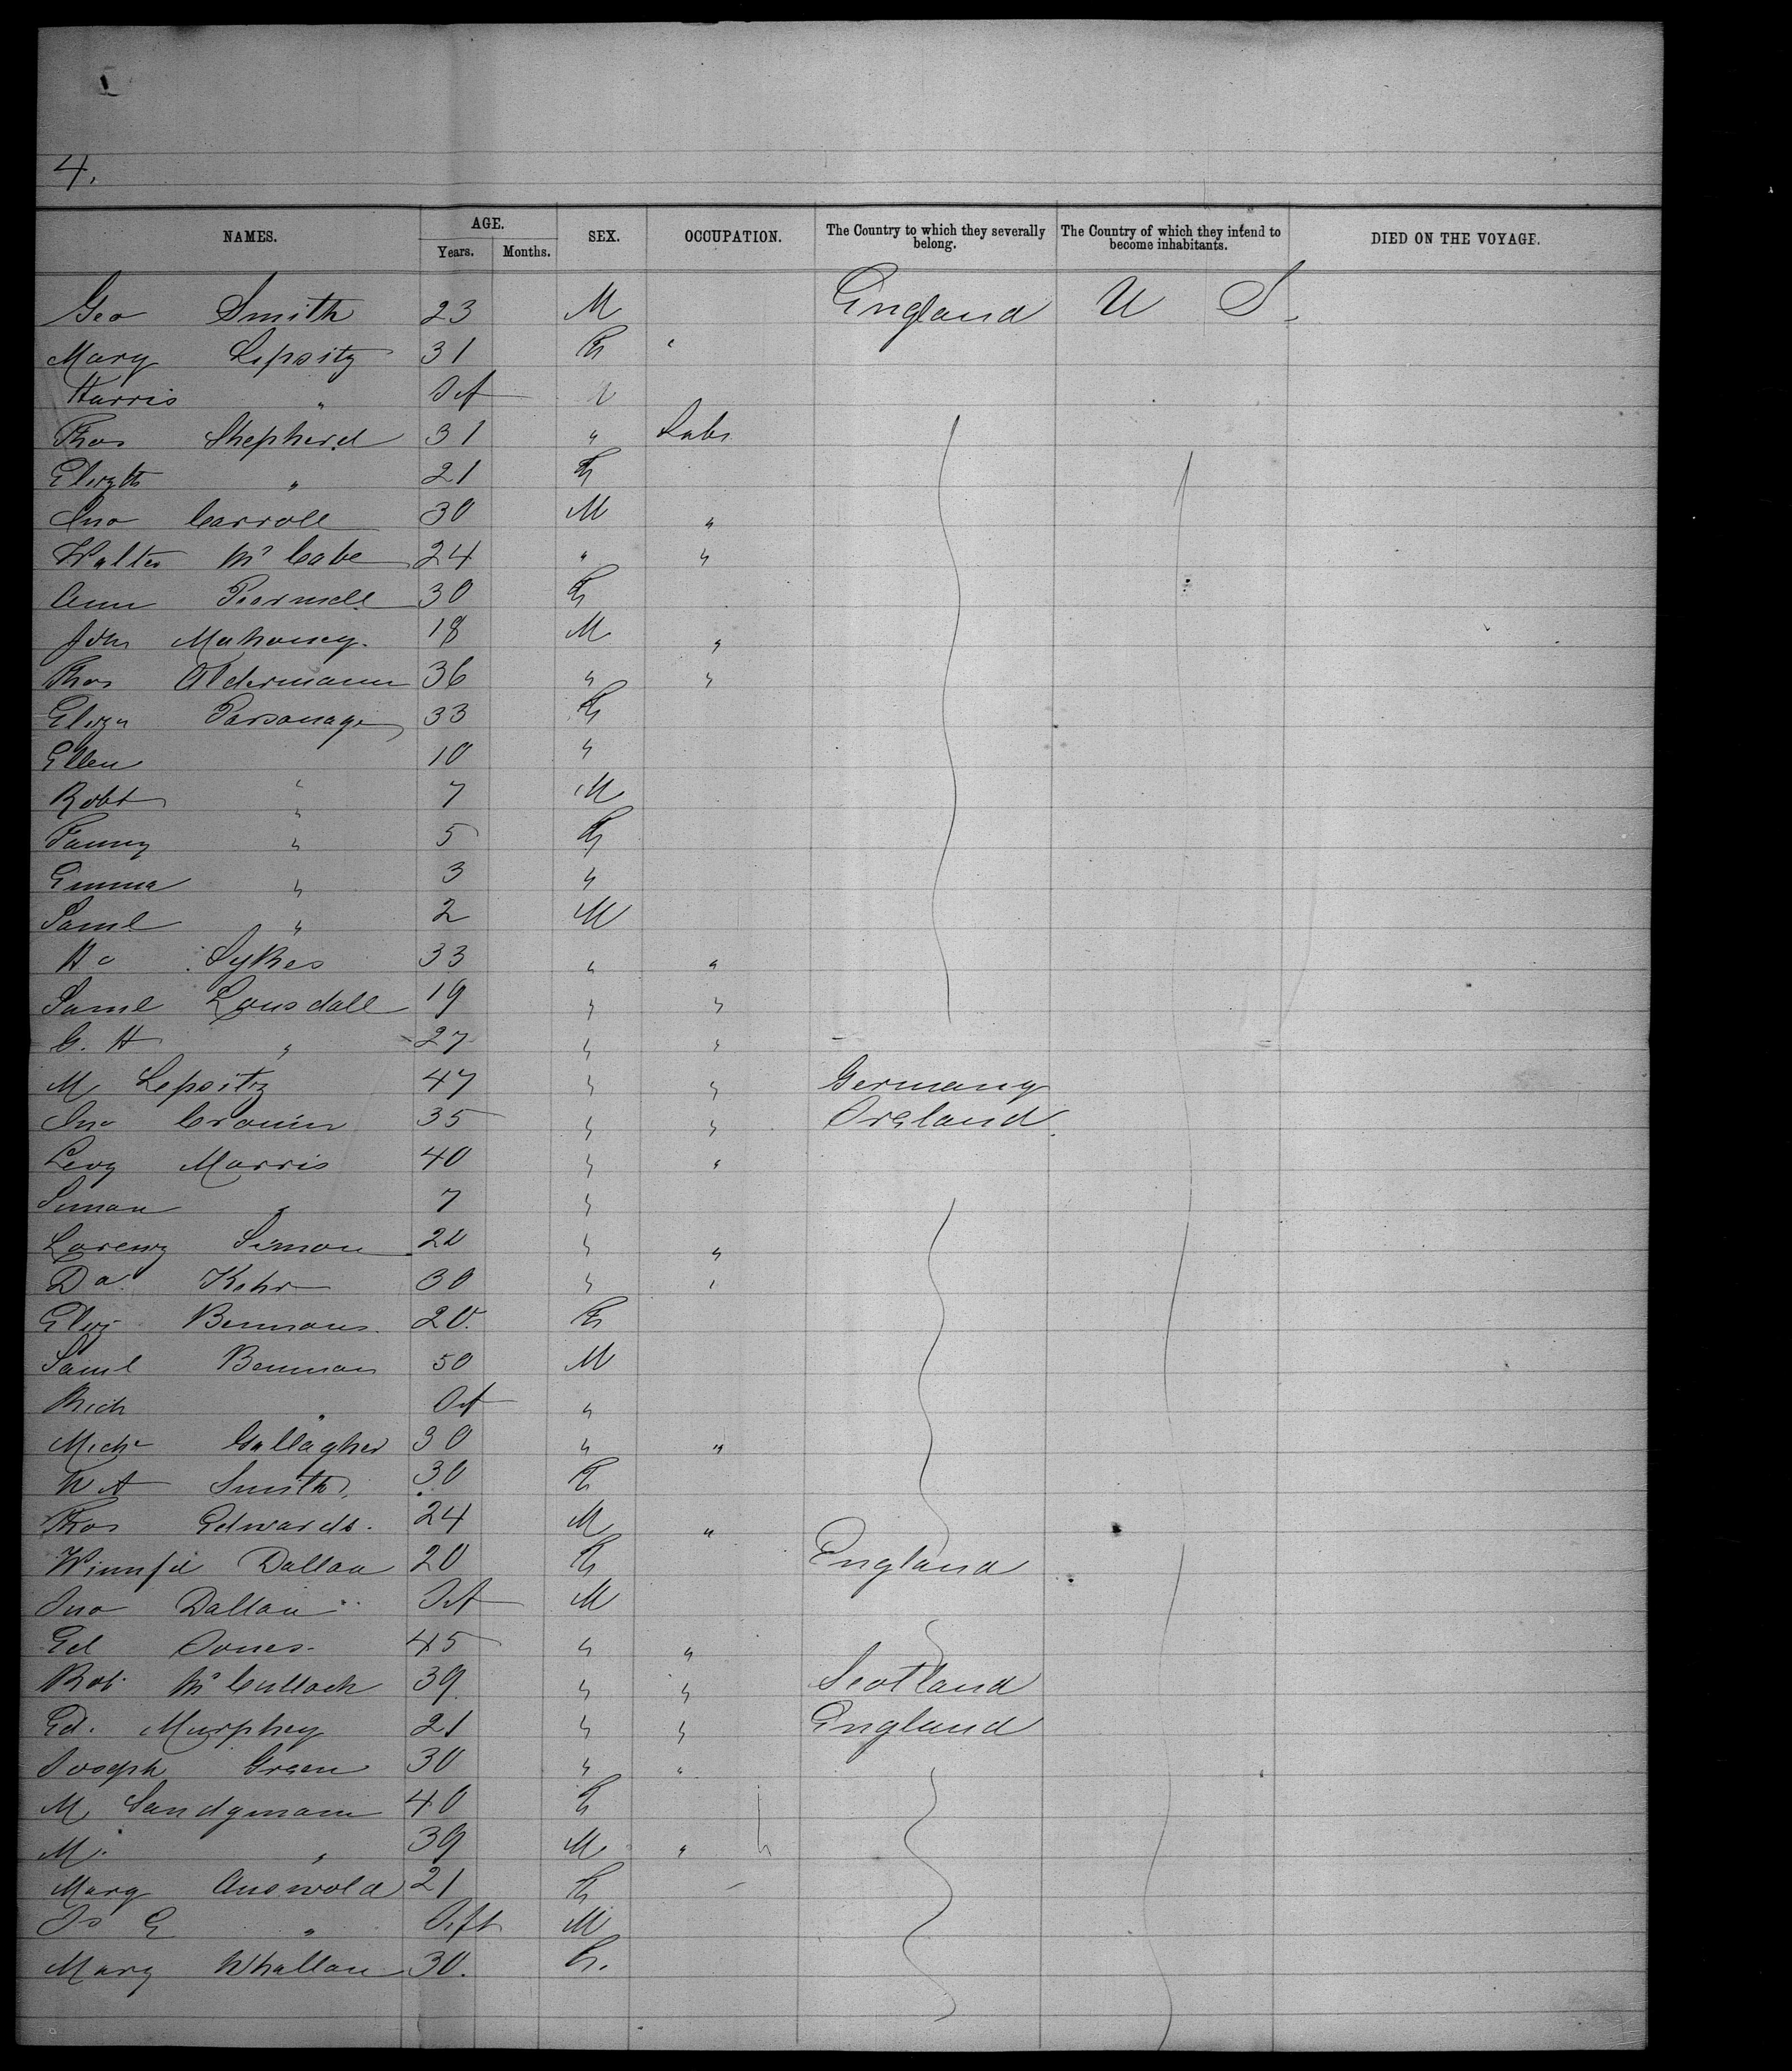 4.
NAMES. AGE. Years. Months. SEX. OCCUPATION. The Country to which they severally belong. The Country of which they intend to become inhabitants. DIED ON THE VOYAGE.
Geo Smith 23 M England U S.
Mary Lipsitz 31 F "
Harris " Inf
Thos Shepherd 31 " Labr
Elizth " 21 F
Jno Carroll 30 M "
Walter McCabe 24 " "
Ann 30 F
John Mahoney. 18 M "
Thos Aldermann 36 " "
Eliza Parsonage 33 F
Ellen 10 "
Robt " 7 M
Fanny " 5 F
Emma " 3 "
Saml " 2 M
Sykes 33 " "
Saml Lonsdall 19 " "
C. H " 27 " "
M Lepsitz 47 " " Germany
Jno Cronin 35 " " Ireland
Levy Morris 40 " "
Siman " 7 "
Lorenz Simon 20 " "
Da. Kehr 30 " "
Eliz Bennans. 20. F
Saml Bennan 50 M
Rich " Inf "
Michl Gallagher 30 " "
W A Smith 30 F
Thos Edwards. 24 M "
Winnfd Dallan 20 F England
Jno Dallan Inf M
Ed Jones. 45 " "
Rob. McCulloch 39 " " Scotland
Ed. Murphey 21 " " England
Joseph Green 30 " "
M Sandgmann 40 F
M. " 39 M "
Mary Answold 21 F
Js E " Inft M
Mary Whallan 30. F.